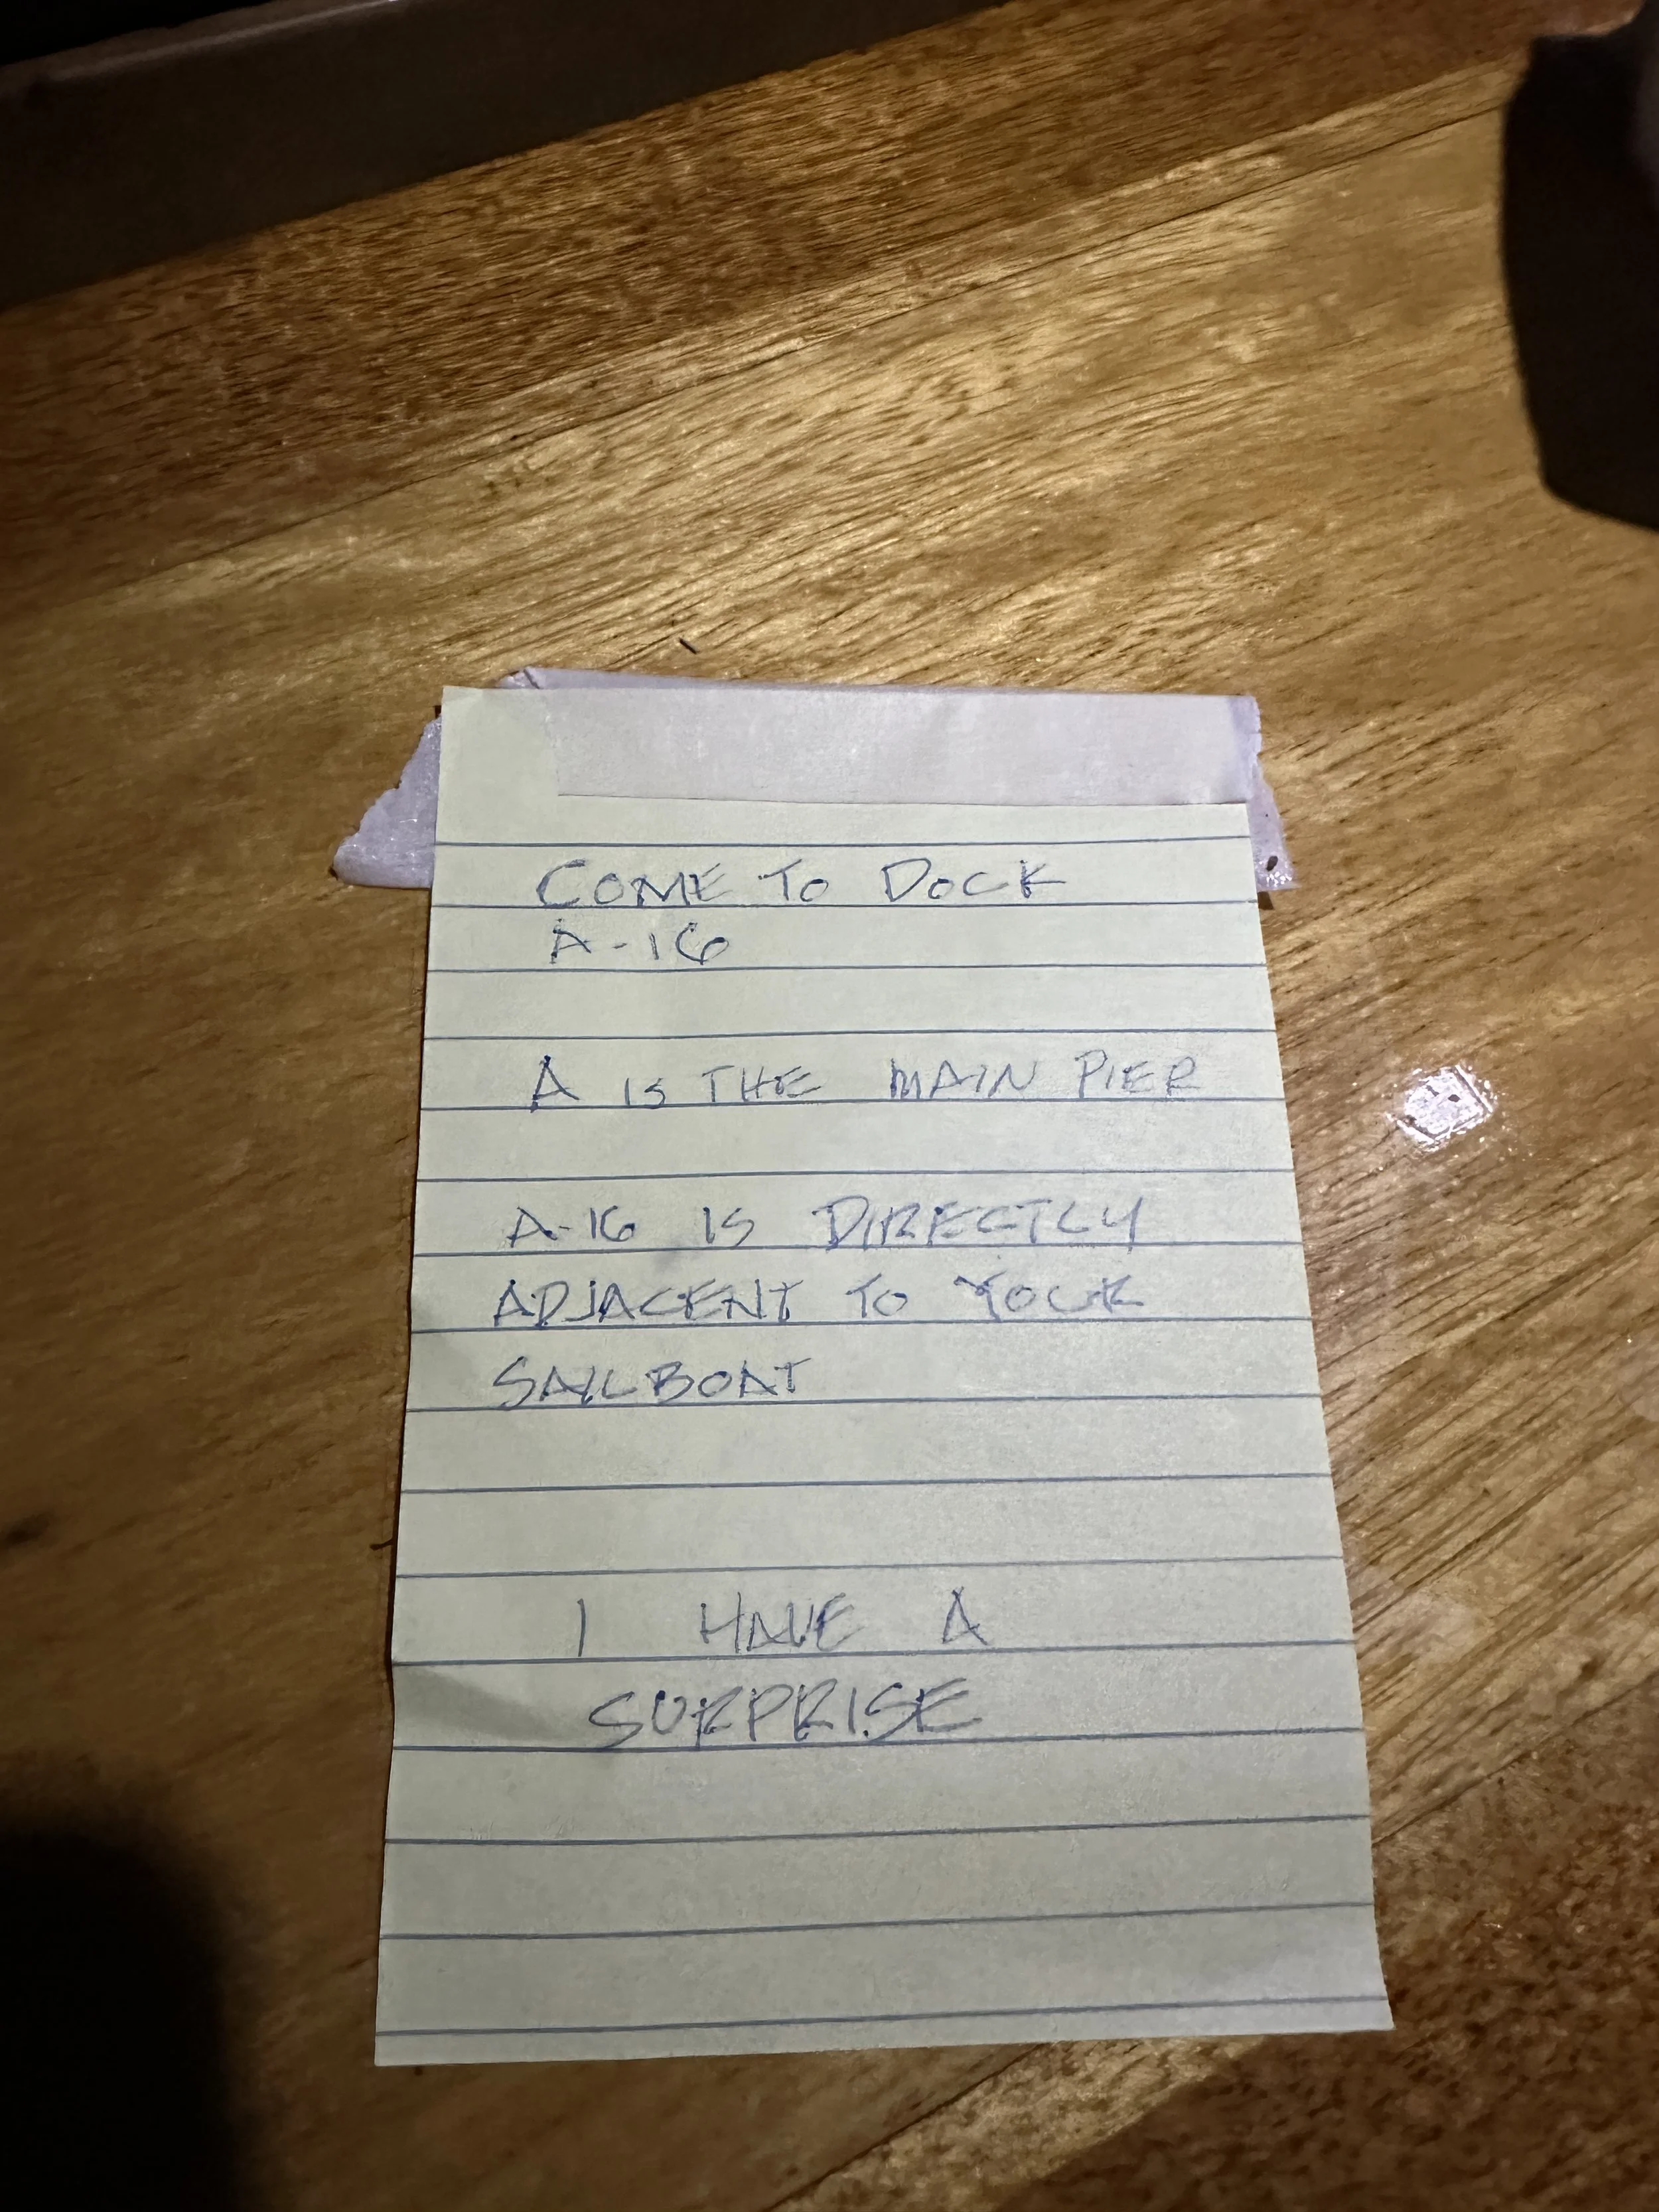 COME TO DOCK
A-16
A IS THE MAIN PIER
A-16 IS DIRECTLY
ADJACENT TO YOUR
SAILBOAT
I HAVE A
SURPRISE